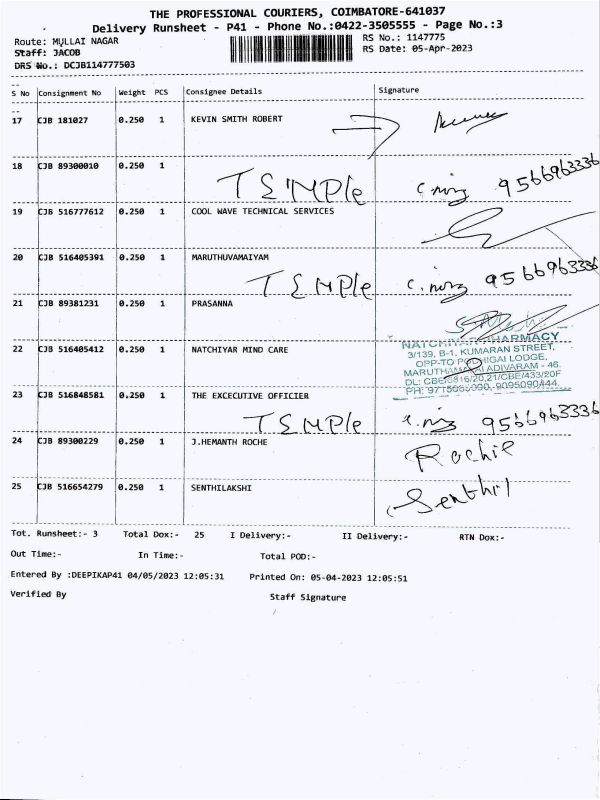 THE PROFESSIONAL COURIERS, COIMBATORE-641037
Delivery Runsheet - P41 - Phone No.:0422-3505555 - Page No.:3
Route: MULLAI NAGAR RS No.: 1147775
Staff: JACOB RS Date: 05-Apr-2023
DRS No.: DCJB114777503
S No Consignment No Weight PCS Consignee Details Signature
17 CJB 181027 0.250 1 KEVIN SMITH ROBERT
18 CJB 89300010 0.250 1
TEMPle 9566963336
19 CJB 516777612 0.250 1 COOL WAVE TECHNICAL SERVICES
20 CJB 516405391 0.250 1 MARUTHUVAMAIYAM
TEMPle 9566963336
21 CJB 89381231 0.250 1 PRASANNA
22 CJB 516405412 0.250 1 NATCHIYAR MIND CARE
PHARMACY
3/139, B-1, KUMARAN STREET,
OPP-TO PODHIGAI LODGE,
MARUTHAMALAI ADIVARAM - 46.
23 CJB 516848581 0.250 1 THE EXCECUTIVE OFFICIER
TEMPle 9566963336
24 CJB 89300229 0.250 1 J.HEMANTH ROCHE
Rochie
25 CJB 516654279 0.250 1 SENTHILAKSHI
Senthil
Tot. Runsheet:- 3 Total Dox:- 25 I Delivery:- II Delivery:- RTN Dox:-
Out Time:- In Time:- Total POD:-
Entered By :DEEPIKAP41 04/05/2023 12:05:31 Printed On: 05-04-2023 12:05:51
Verified By Staff Signature